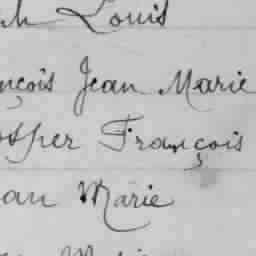 Louis
nçois Jean Marie
osper François
an Marie